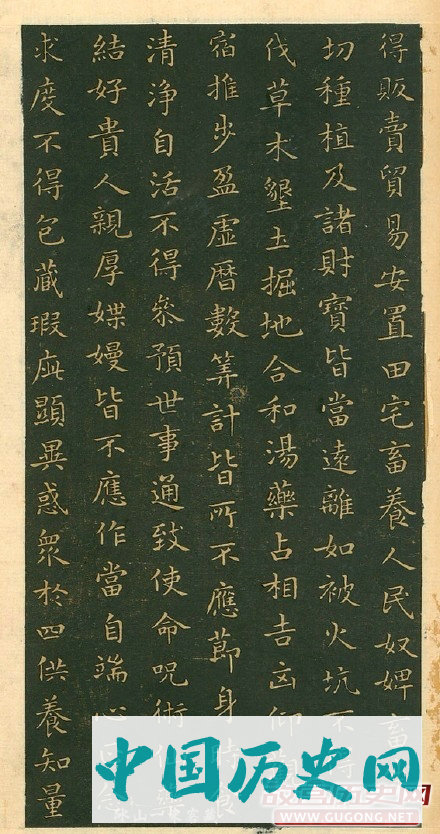 得販賣貿易安置田宅畜養人民奴婢畜
切種植及諸財寶皆當遠離如被火坑不
伐草木墾土掘地合和湯藥占相吉凶仰
宿推步盈虛曆數筭計皆所不應節身時
清淨自活不得參預世事通致使命呪術仙
結好貴人親厚媟嫚皆不應作當自端心
求度不得包藏瑕疵顯異惑衆於四供養知量
中国历史网
故宫历史网
WWW.GUGONG.NET